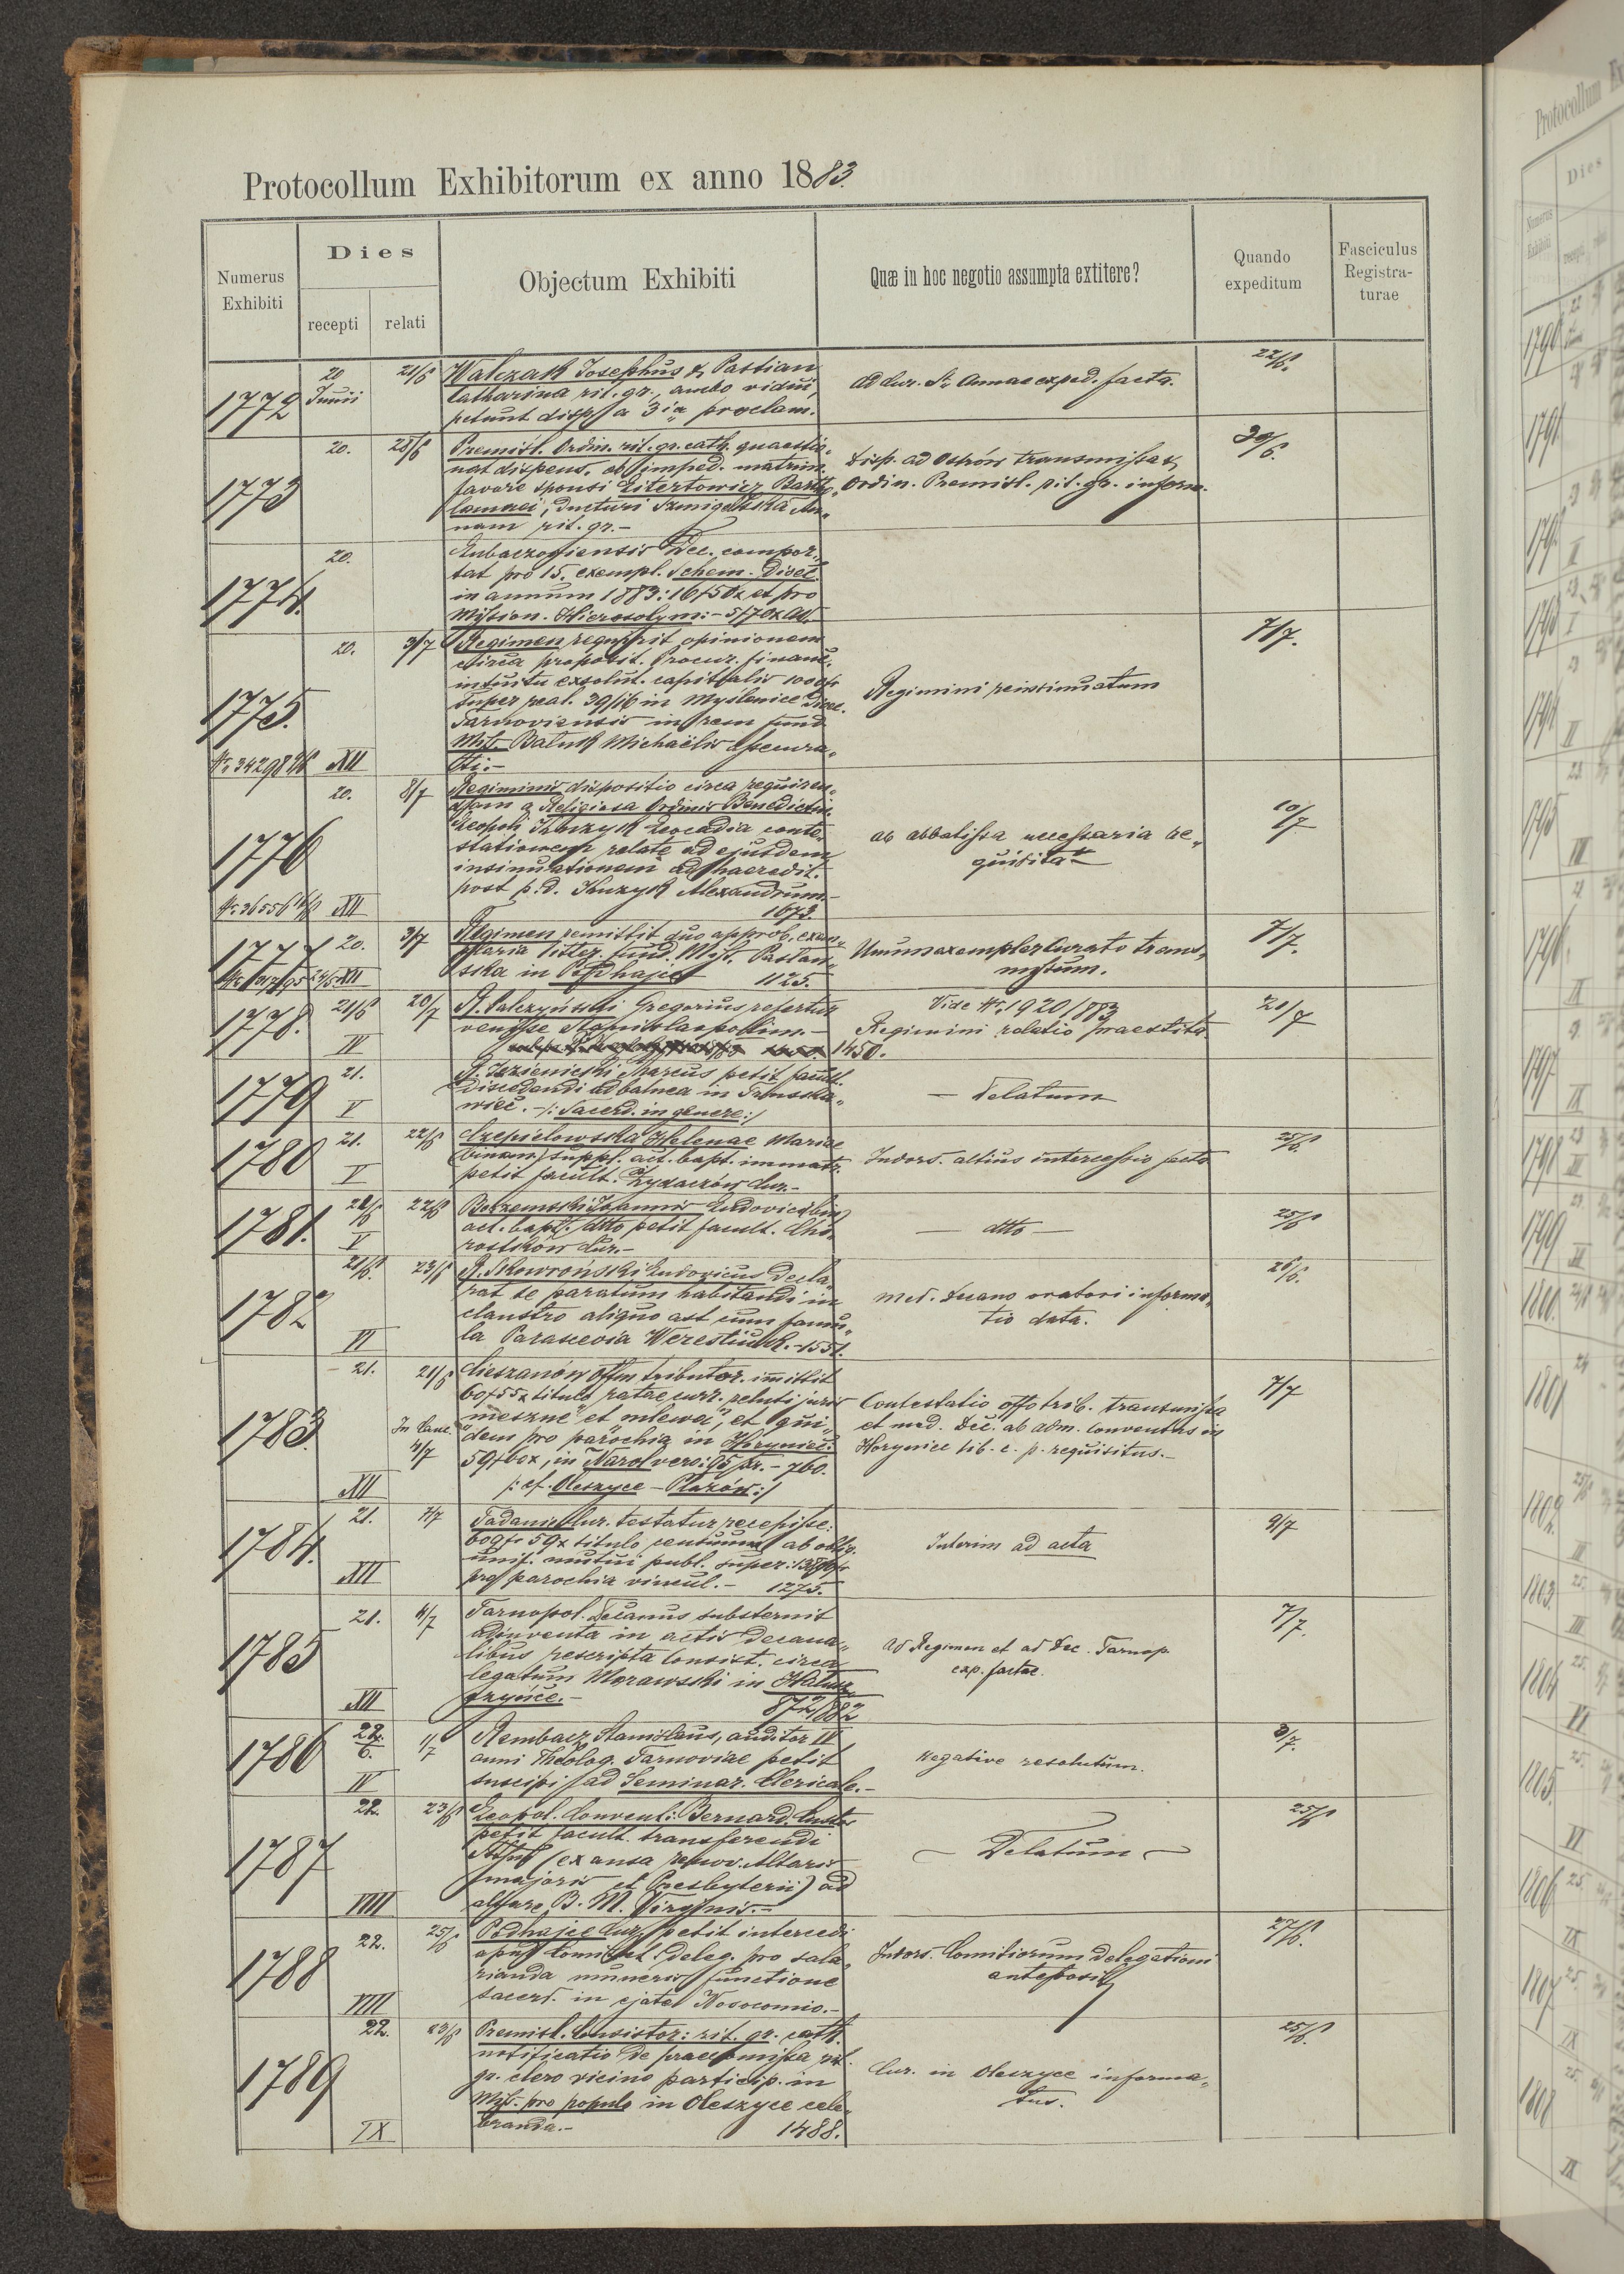 Protocollum Exhibitorum ex anno 1883.
Numerus Exhibiti
Dies
recepti
relati
Objectum Exhibiti
Quæ in hoc negotio assumpta extitere?
Quando expeditum
Fasciculus Registra-
turae
1772
20 Junii
21/6
Walczak Josephus & Pastian
Catharina rit. gr., ambo vidui,
petunt disp. a 3ia proclam.
ad Cur. St. Annae exped. facta.
22/6.
1773
20.
28/6
Premisl. Ordin. rit. gr. cath. quaestio„
nat dispens. ab imped. matrim.
favore sponsi Zitertowicz Bartho„
lomaei, ducturi
nam rit. gr.-
disp. ad Ostrów transmissa &
Ordin. Premisl. rit. gr. inform.
30/6.
1774.
20.
Dec. compor„
tat pro 15. exempl. Schem. Dioec.
in annum 1883: 16f50x et pro
Mission. Hierosolym:- 5f70x
1775.
20.
3/7
Regimen requirit opinionem
circa proposit. Procur. financ.
intuitu exsolut. capitalis 1000fr
super real. 39/16 in Myślenice Dioec.
Tarnoviensis in rem fund.
Miss. Michaëlis
ti.-
Regimini reinsinuatum
7/7.
XII
1776
20.
8/7
Regiminis dispositio circa requiren„
dam a Religiosa Ordinis Benedictin.
Leopoli Leocadia conte„
stationem relate ad ejusdem
insinuationem ad haeredit.
post p.d. Alexandrum.-
1673.
ab abbatissa necessaria re„
quisita
10/7
XII
1777
20.
3/7
Regimen remittit duo approb. exem„
plaria litter. fund. Miss.
ska in Podhajce 1125.
Unum exemplar Curato trans„
missum.
7/7.
XII
1778.
21/6
20/7
R. Gregorius refertur
1450.
Vide Nr. 1920/883
Regimini relatio praestita.
21/7
IV
1779
21.
R. Marcus petit facult.
discedendi ad balnea in Truska„
wiec.-/: Sacerd. in genere:/
— Delatum
V
1780
21.
22/6
Czepielowska Helenae Mariae
(binom) suppl. act. bapt. immatr.
petit facult. Żydaczów Cur.-
Indors. altius intercessio facta
25/6
V
1781.
21/6
22/6
Johannis Ludovici (bin)
act. bapt. dtto petit facult. Cho„
rostków Cur.-
— dtto —
25/6
V
1782
21/6.
23/6
R. Skowroński Ludovicus decla„
rat se paratum habitandi in
claustro aliquo ast cum famu„
la Parascevia Werestiuk.-1551.
med. Decano oratori informa„
tio data.
26/6.
VI
1783.
21.
21/6
In Canc.
4/7
Cieszanów Offm tributor. immittit
60f55x titulo ratae curr. reluti juris
„meszne” et „mlewa”, et qui„
dem pro parochia in Horyniec:
59f60x, in Narol vero: 95 xr.- 760.
/: cf. Oleszyce - Płazów:/
Contestatio offo trib. transmissa
et med. Dec. ab adm. Conventus in
Horyniec lib. c. p. requisitus.-
7/7
XII
1784.
21.
7/7
Tadanie Cur. testatur recepisse:
609fr 59x titulo censuum ab oblig.
unif. mutui publ. super:
pro parochia vincul.- 1275.
Interim ad acta
9/7
XII
1785
21.
4/7
Tarnopol. Decanus substernit
adinventa in actis decana„
libus rescripta Consist. circa
legatum Morawski in Hałusz„
czyńce.- 872/882
Ad Regimen et ad Dec. Tarnop.
exp. factae.
7/7.
XII
1786
22./6.
1/7
Rembacz Stanislaus, auditor II
anni Theolog. Tarnoviae petit
suscipi ad Seminar. Clericale.-
Negative resolutum.
3/7.
IV
1787
22.
23/6
Leopol. Convent: Bernard. Custos
petit facult. transferendi
(ex ansa renov. Altaris
majoris et Presbyterii) ad
altare B. M. Virginis.-
— Delatum —
25/6
VIII
1788
22.
25/6
Podhajce Cur. petit intercedi
apud Comit. Deleg. pro sala„
rianda muneris functione
sacerd. in ejate Nosocomio.-
Indors. Comitiorum delegationi
anteposit.
27/6.
VIII
1789
22.
23/6
Premisl. Consistor: rit. gr. cath.
notificatio de praecommissa rit.
gr. clero vicino particip. in
Miss. pro populo in Oleszyce cele„
branda.- 1488.
Cur. in Oleszyce informa„
tus.
25/6.
IX
Protocollum Ex
Dies
Numerus Exhibiti
1790
1791
1792
1793
1794
1795
1796
1797
1798
1799
1800
1801
1802.
1803.
1804
1805.
1806
1807
1808